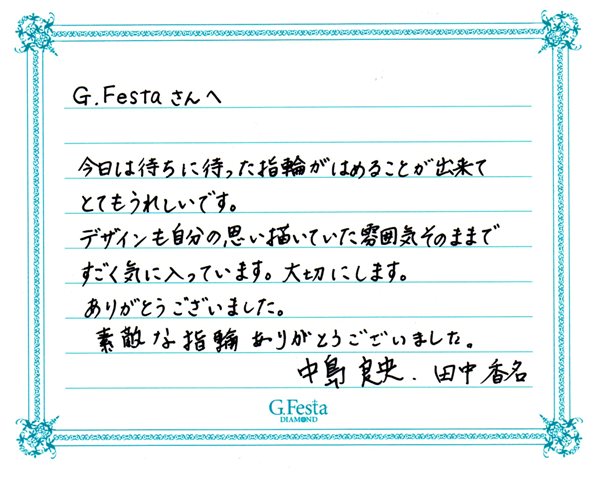 G.Festaさんへ
今日は待ちに待った指輪がはめることが出来て
とてもうれしいです。
デザインも自分の思い描いていた雰囲気そのままで
すごく気に入っています。大切にします。
ありがとうございました。
素敵な指輪ありがとうございました。
中島 良央. 田中 香名
G.Festa
DIAMOND